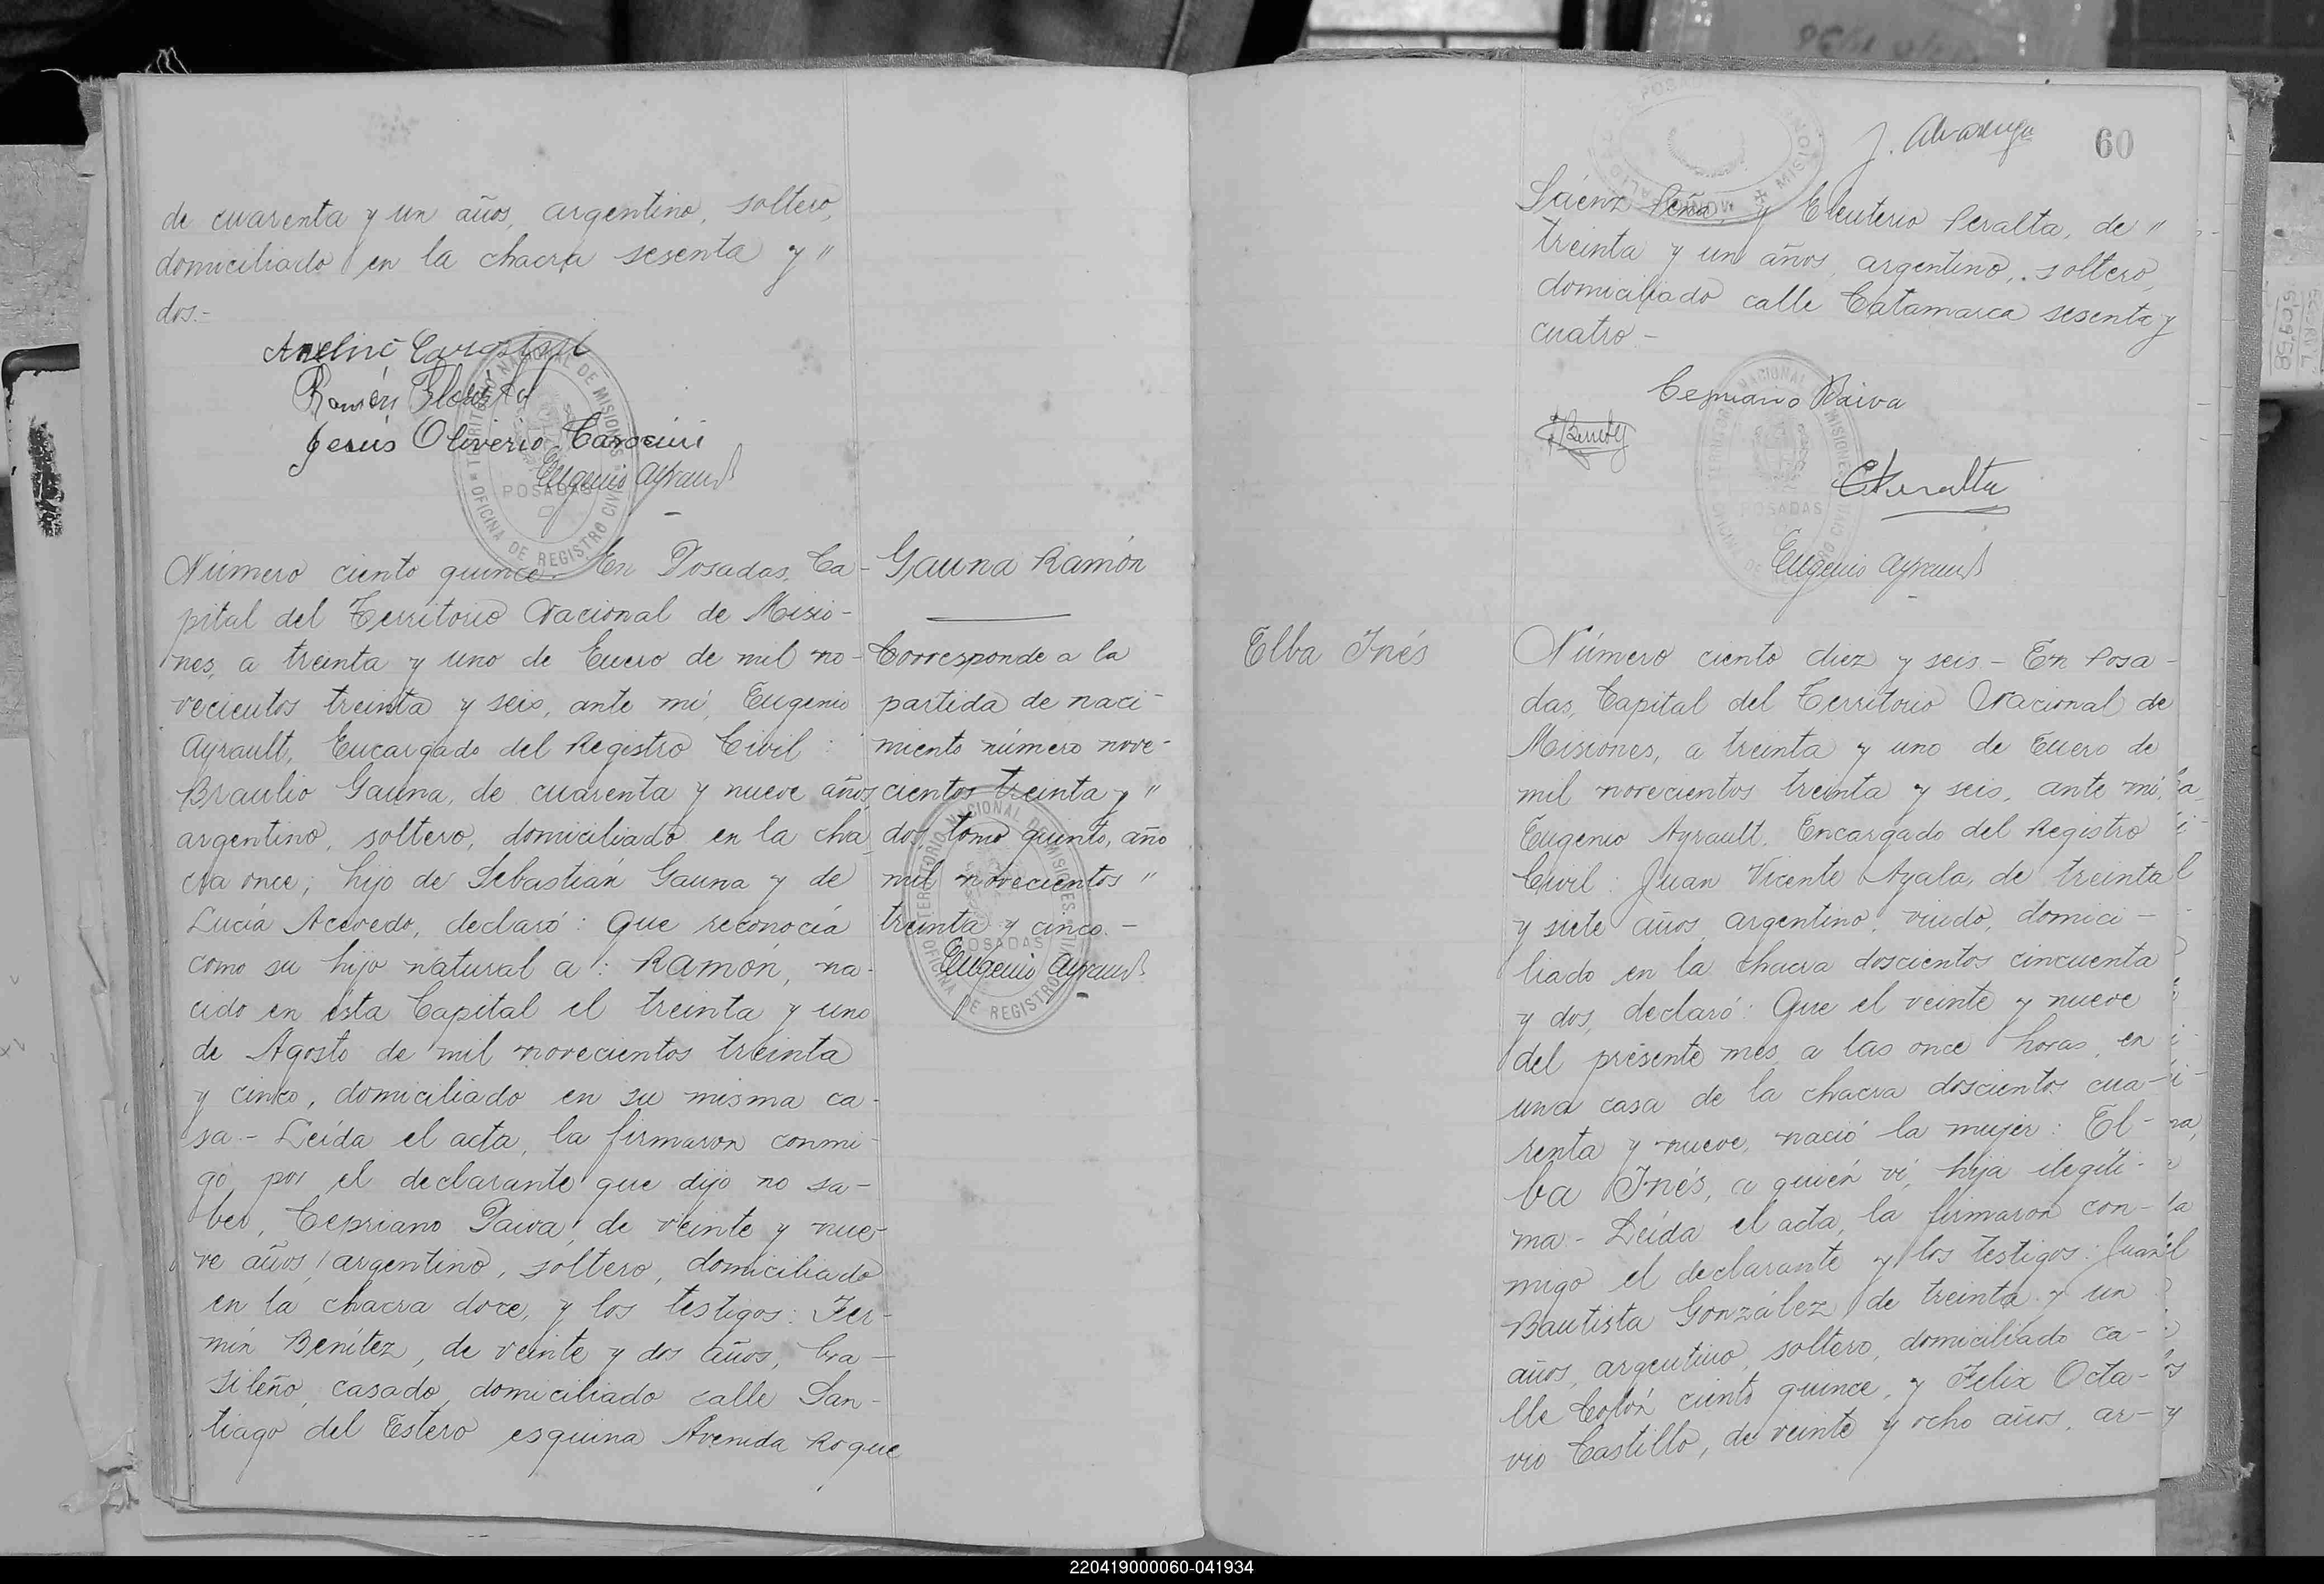 de cuarenta y un años, argentino, soltero,
domiciliado en la chacra sesenta y "
dos.-
Ramón
Jesús Oliverio
Eugenio Ayrault
TERRITORIO NACIONAL DE MISIONES
POSADAS
OFICINA DE REGISTRO CIVIL
Número ciento quince. En Posadas, Ca-
pital del Territorio Nacional de Misio-
nes, a treinta y uno de Enero de mil no-
vecientos treinta y seis, ante mí, Eugenio
Ayrault, Encargado del Registro Civil:
Braulio Gauna, de cuarenta y nueve años,
argentino, soltero, domiciliado en la cha
cra once; hijo de Sebastián Gauna y de
Lucía Acevedo, declaró: Que reconocía
como su hijo natural a: Ramón, na-
cido en esta Capital el treinta y uno
de Agosto de mil novecientos treinta
y cinco, domiciliado en su misma ca-
sa.- Leída el acta, la firmaron conmi-
go por el declarante que dijo no sa-
ber, Cepriano Paiva, de veinte y nue-
ve años, argentino, soltero, domiciliado
en la chacra doce, y los testigos: Fer-
mín Benítez, de veinte y dos años, bra-
sileño, casado, domiciliado calle San-
tiago del Estero esquina Avenida Roque
Gauna Ramón
Corresponde a la
partida de naci-
miento número nove-
cientos treinta y "
dos, tomo quinto, año
mil novecientos "
treinta y cinco.-
Eugenio Ayrault
TERRITORIO NACIONAL DE MISIONES
POSADAS
OFICINA DE REGISTRO CIVIL
J. Alvarenga
60
Sáenz Peña, y Eleuterio Peralta, de "
treinta y un años, argentino, soltero,
domiciliado calle Catamarca sesenta y
cuatro -
Cepriano Paiva
EPeralta
Eugenio Ayrault
POSADAS
Elba Inés
Número ciento diez y seis.- En Posa-
das, Capital del Territorio Nacional de
Misiones, a treinta y uno de Enero de
mil novecientos treinta y seis, ante mí,
Eugenio Ayrault, Encargado del Registro
Civil: Juan Vicente Ayala, de treinta
y siete años, argentino, viudo, domici-
liado en la chacra doscientos cincuenta
y dos, declaró: Que el veinte y nueve
del presente mes, a las once horas, en
una casa de la chacra doscientos cua-
renta y nueve, nació la mujer: El-
ba Inés, a quién ví, hija ilegíti-
ma.- Leída el acta, la firmaron con-
migo el declarante y los testigos: Juan
Bautista González, de treinta y un
años, argentino, soltero, domiciliado ca-
lle Colón ciento quince, y Felix Octa-
vio Castillo, de veinte y ocho años, ar-
220419000060-041934